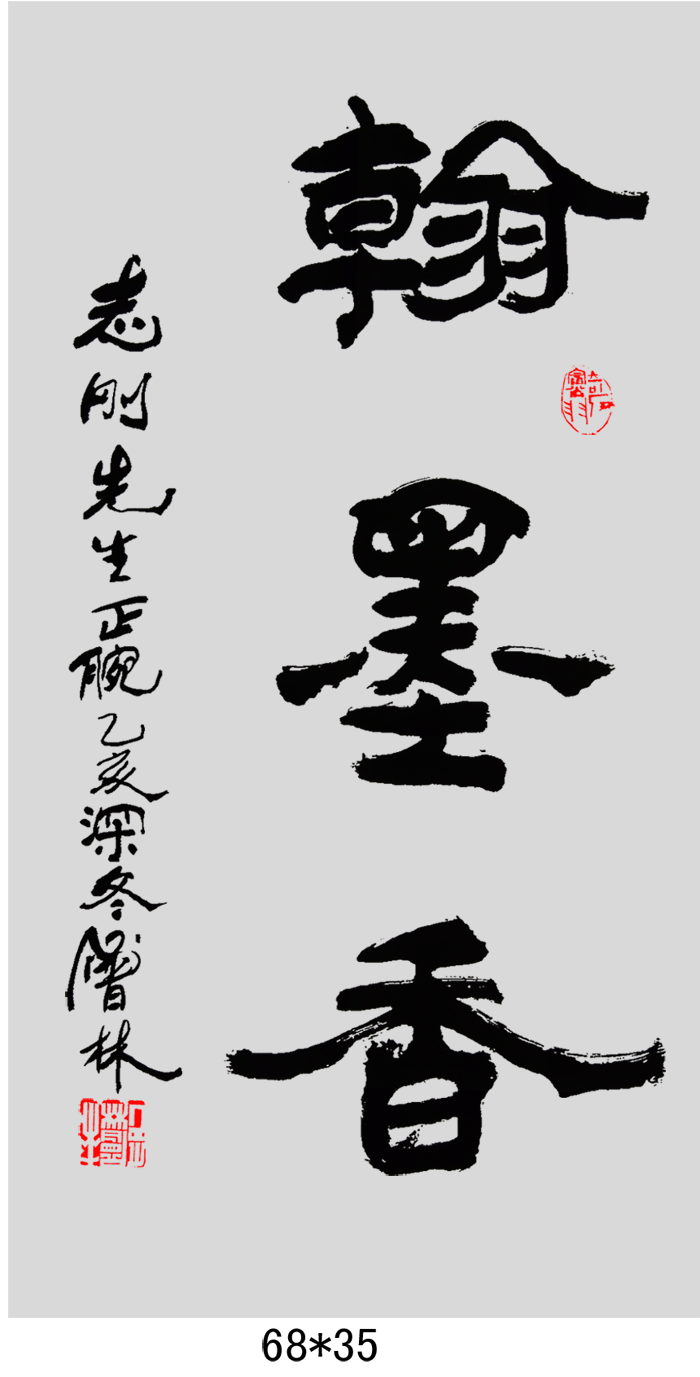 翰墨香
志刚先生正腕乙亥深冬
林
68*35